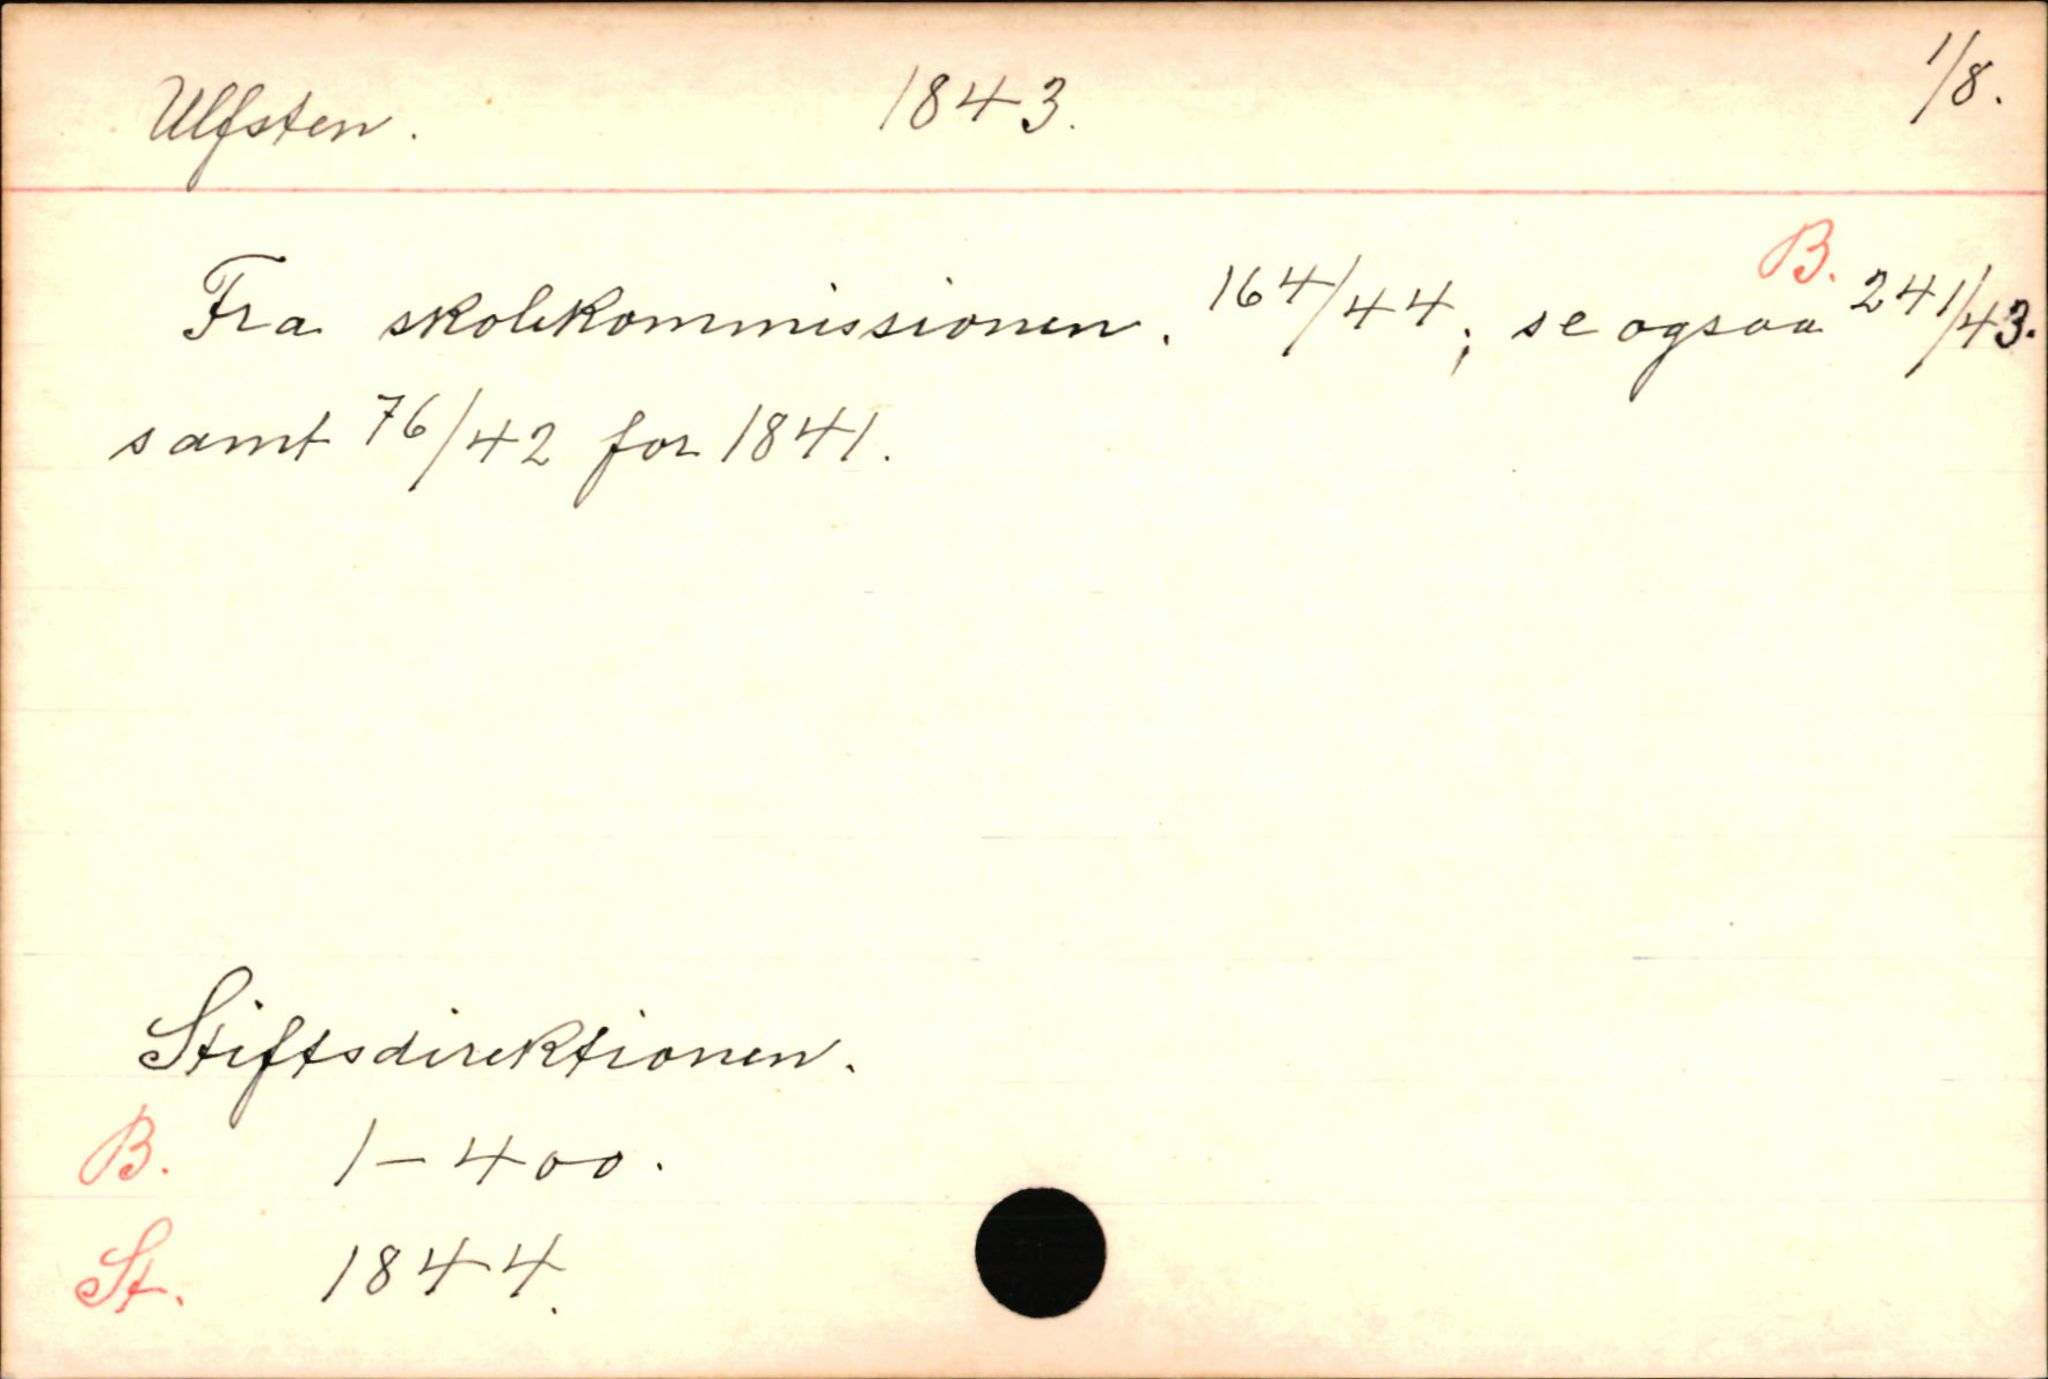 Ulfsten. 1843. 1/8.
Fra skolekommissionen. 164/44; se ogsaa B. 241/43.
samt 76/42 for 1841.
Stiftsdirektionen.
B. 1-400.
St. 1844.